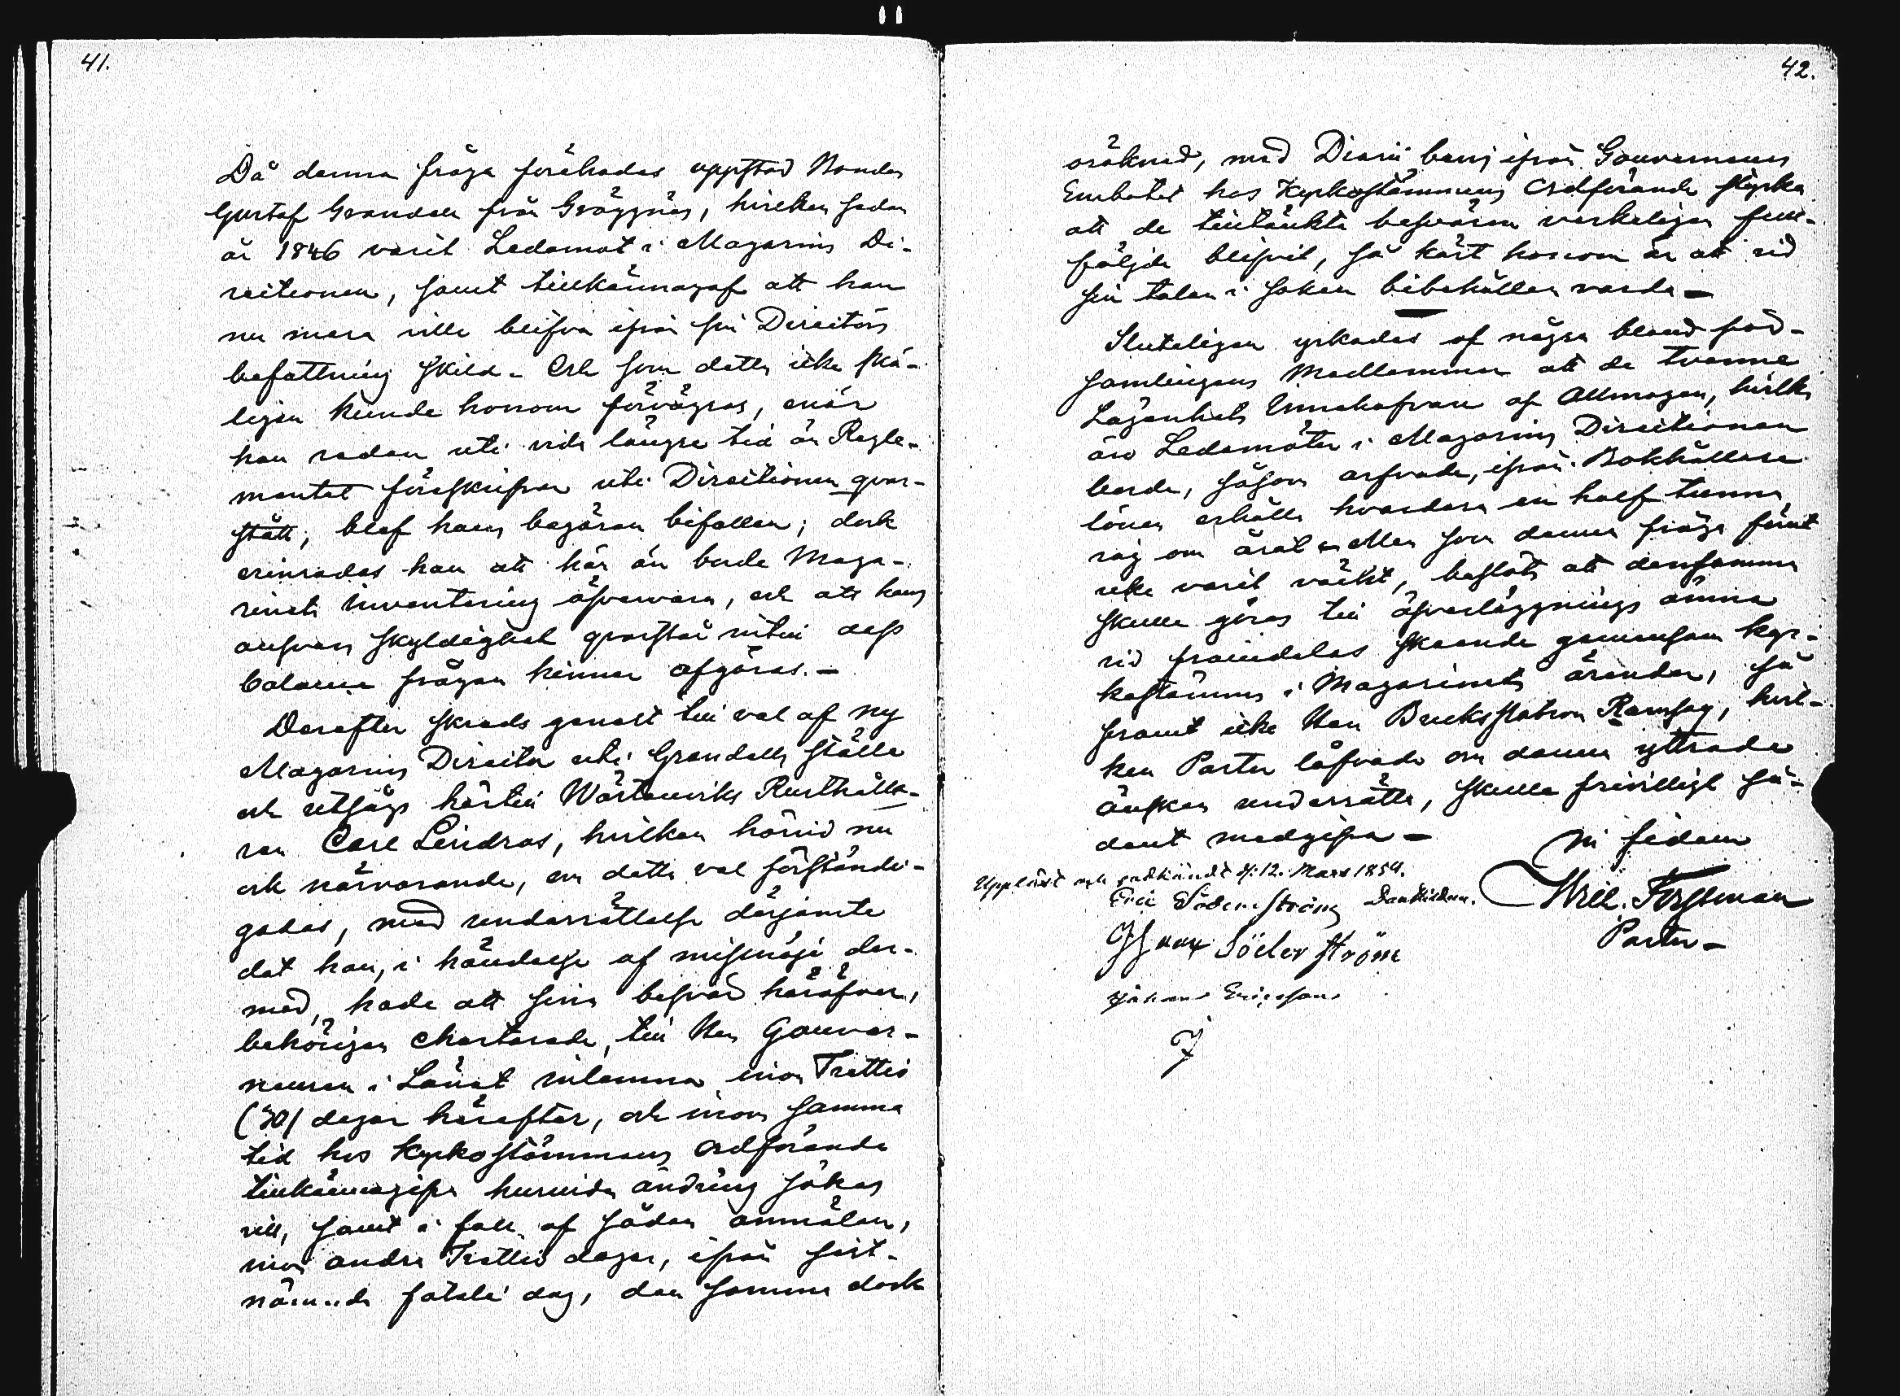 41.
Då denna fråga förehades uppstod Bonden
Gustaf Grandell från Gräggnäs, hvilken sedan
år 1846 varit Ledamot i Magasins Di-
rectionen, samt tillkännagaf att han
nu mera ville blifva ifrån sin Directörs
befattning skild. Och som detta icke skä-
ligen kunde honom förvägras, enär
han redan uti vida längre tid än Regle-
mentet föreskrifver uti Directionen qvar-
stått, blef hans begäran bifallen; dock
erinrades han att här än borde Maga-
sinets inventering öfvervara, och att hans
ansvars skyldighet qvarstår intill dess
berörda frågan hinner afgöras.—
Derefter skreds genast till val af ny
Magasins Director uti Grandells ställe
och utsågs härtill Wårtanviks Rusthålla-
ren Carl Lindros, hvilken härvid nu
ock närvarande, om detta val förständi-
gades, med underrättelse derjemte
det han, i händelse af missnöje der-
med, hade att sina besvär häröfver,
behörigen charterade, till Herr Gouver-
neuren i Länet inlemna inom Trettio
(30) dagar härefter, och inom samma
tid hos Kyrkostämmans Ordförande
tillkännagifva huruvida ändring sökas
vill, samt i fall af sådan anmälan,
inom andra Trettio dagar, ifrån sist-
nämnde fatalie dag, den samma dock
42.
oräknad, med Diarii bevis ifrån Gouverneurs
Embetet hos Kyrkostämmans Ordförande styrka
att de tilltänkta besvären verkeligen full-
följde blifvit, så kärt honom är att vid
sin talan i saken bibehållen varda —
Sluteligen yrkades af några bland för-
samlingens Medlemmar att de tvenne
Lägenhets Innehafvare af Allmogen, hvilka
äro Ledamöter i Magasins Directionen
borde, såsom arfvode, ifrån Bokhållare
lönen erhålla hvardera en half tunna
råg om året — Men som denna fråga förut
icke varit väckt, beslöts att densamma
skulle göras till öfverläggnings ämne
vid framdeles skeende gemensam kyr-
kostämma i Magasinets ärenden, så
framt icke Herr Bruks Patron Ramsay, hvil-
ken Pastor låfvade om denna yttrade
önskan underrätta, skulle frivilligt så-
dant medgifva —
In fidem
Uppläst och godkändt d. 12. Mars 1854.
Wilh. Forssman
Pastor —
Eric Söderström
Söderström
Johans Ericsson